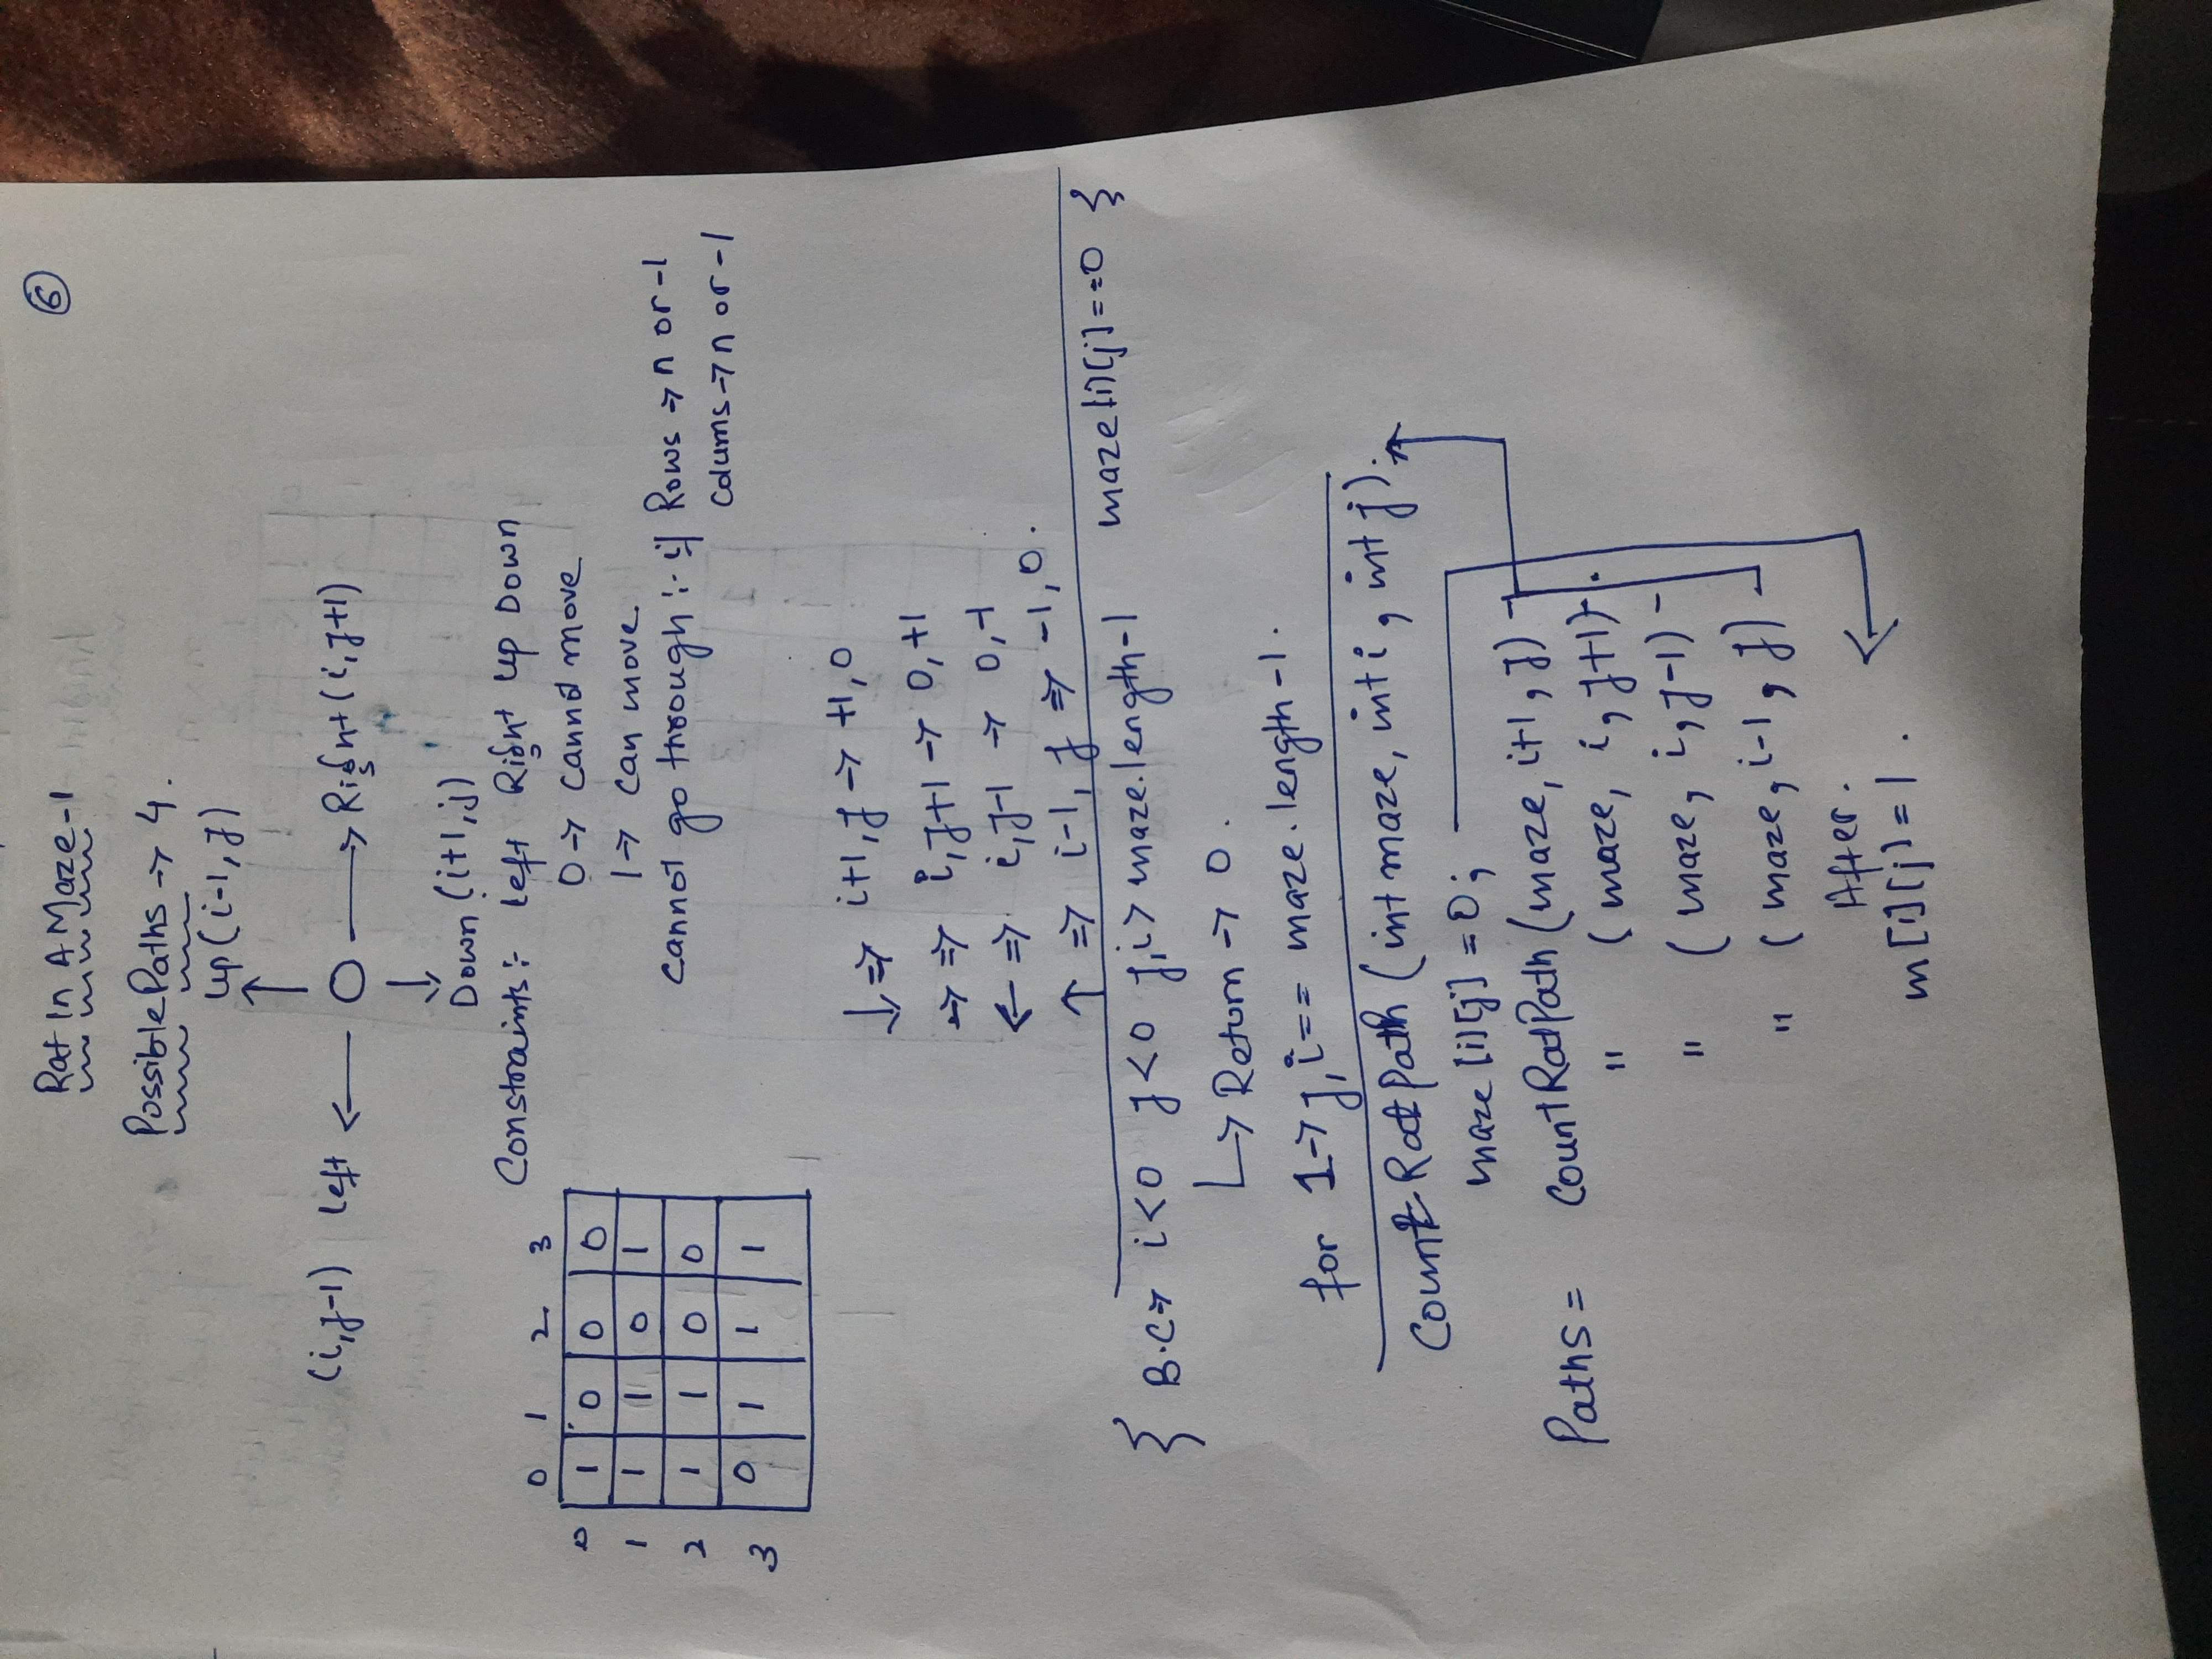 Rat In A Maze-1
6
Possible Paths → 4.
up (i-1, j)
(i, j-1) left ← O → Right (i, j+1)
Down (i+1, j)
Constraints :- left Right up Down
0 → cannot move
1 → can move.
cannot go through :- if Rows → n or -1
Colums → n or -1
0 1 2 3
0 1 0 0 0
1 1 1 0 1
2 1 1 0 0
3 0 1 1 1
↓ ⇒ i+1, j → +1, 0
→ ⇒ i, j+1 → 0, +1
← ⇒ i, j-1 → 0, -1
↑ ⇒ i-1, j ⇒ -1, 0.
{ B.C → i<0 j<0 j,i > maze.length-1 maze[i][j]==0 }
↳ Return → 0.
for 1 → j, i == maze.length-1.
Count Rat Path (int maze, int i, int j).
maze [i][j] = 0;
Paths = Count Rat Path (maze, i+1, j)
" (maze, i, j+1)
" (maze, i, j-1)
" (maze, i-1, j)
After.
m[i][j] = 1.